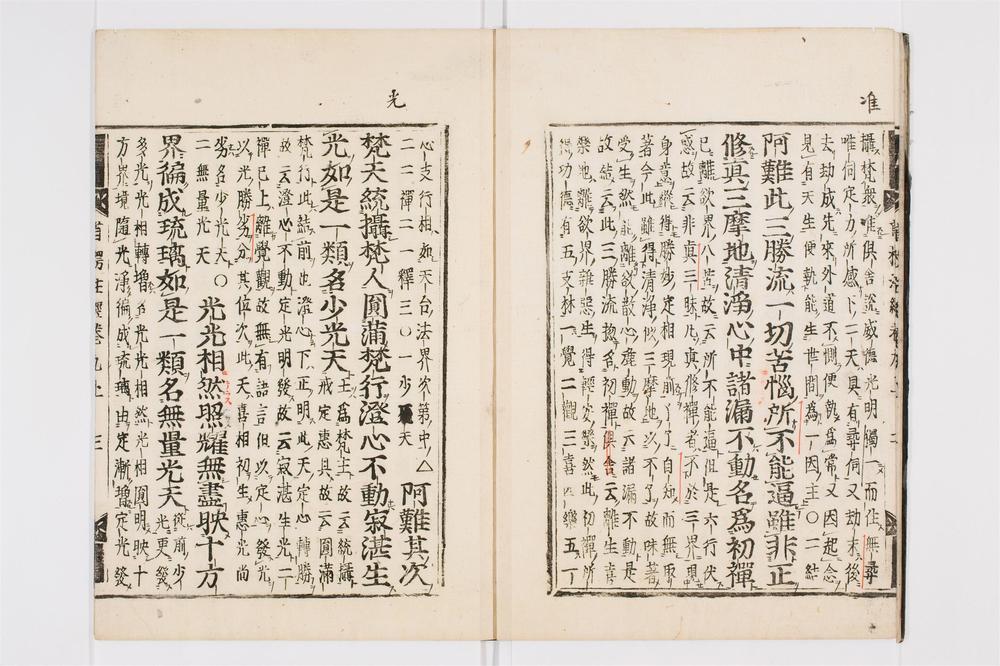 准
攝梵衆唯俱舍說威德光明獨一而住無尋
唯伺定力所感下二天具有尋伺又劫末後
去劫成先來外道不測便執爲常又因起念
見有天生便執能生世間爲一因主〇二結
阿難此三勝流一切苦惱所不能逼雖非正
修眞三摩地清淨心中諸漏不動名爲初禪
已離欲界八苦故云所不能逼但是六行伏
惑故云非眞三昧凡眞修禪者不於三界現
身意得勝妙定相現前了了自知而無取
著今此雖得清淨似三摩地以不了故味著
受生然能離欲散心䧺動故云諸漏不動是
故結云此三勝流揔名初禪俱舍云離生喜
樂地離欲界雜惡生得輕安樂然此初禪所
得功德有五支林一覺二觀三喜四樂五一
光
心支行相如天台法界次第中△
二二禪二一釋三〇一少天
阿難其次
梵天統攝梵人圓滿梵行澄心不動寂湛生
光如是一類名少光天
王爲梵主故云統攝
戒定惠具故云圓滿
梵行此結前也澄心下正明此天定心轉勝
故云澄心不動定光明發故云寂湛生光二
禪已上離覺觀故無有語言但以定心發光
以光勝劣分其位次此天喜相初生惠光尚
劣名少光天〇
二無量光天
光光相然照耀無盡映十方
界徧成琉璃如是一類名無量光天
光更發
多光光相轉增光光相然光相圓明映十
方界境隨光淨徧成琉璃由定漸增定光發
首楞